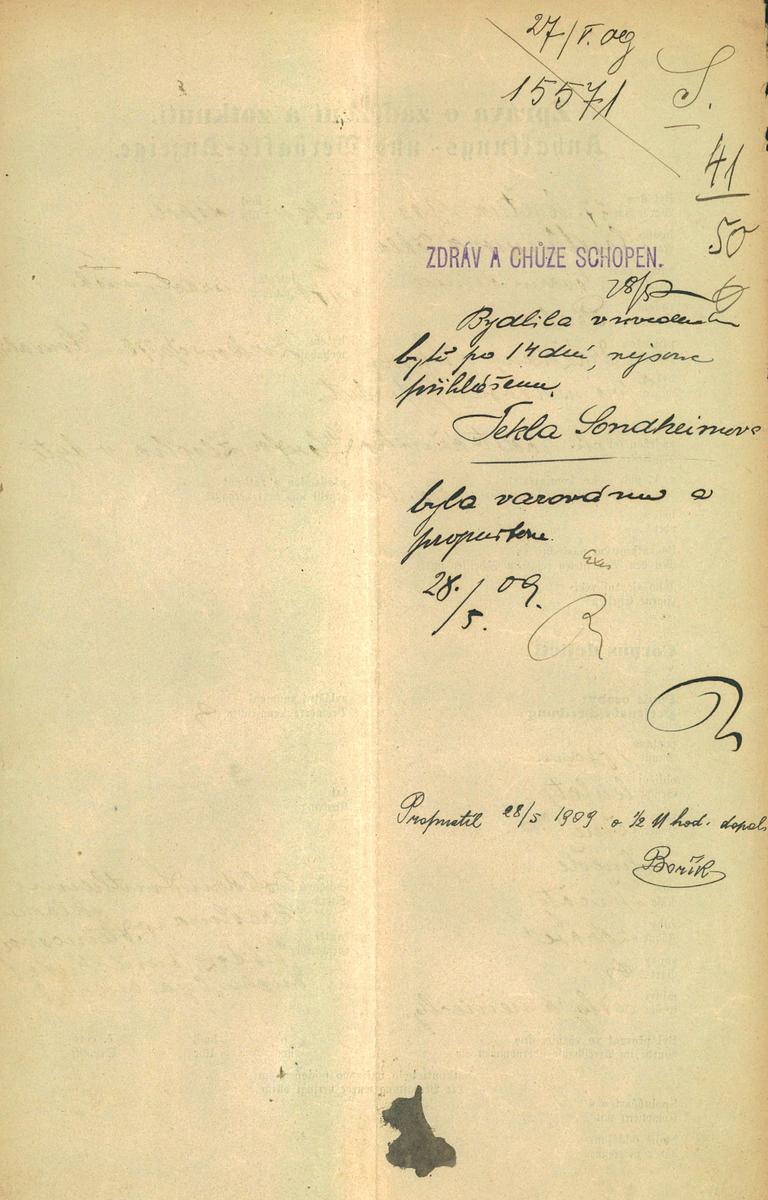 27/V. 09
15571
S.
41
50
6
ZDRÁV A CHŮZE SCHOPEN.
28/5
Bydlila v uvedeném
bytě po 14 dní, nejsouc
přihlášena.
Tekla Sondheimova
byla varována a
propuštěna.
28./5. 09.
Propustil 28/5 1909 o ½ 11 hod. dopol.
Bořík